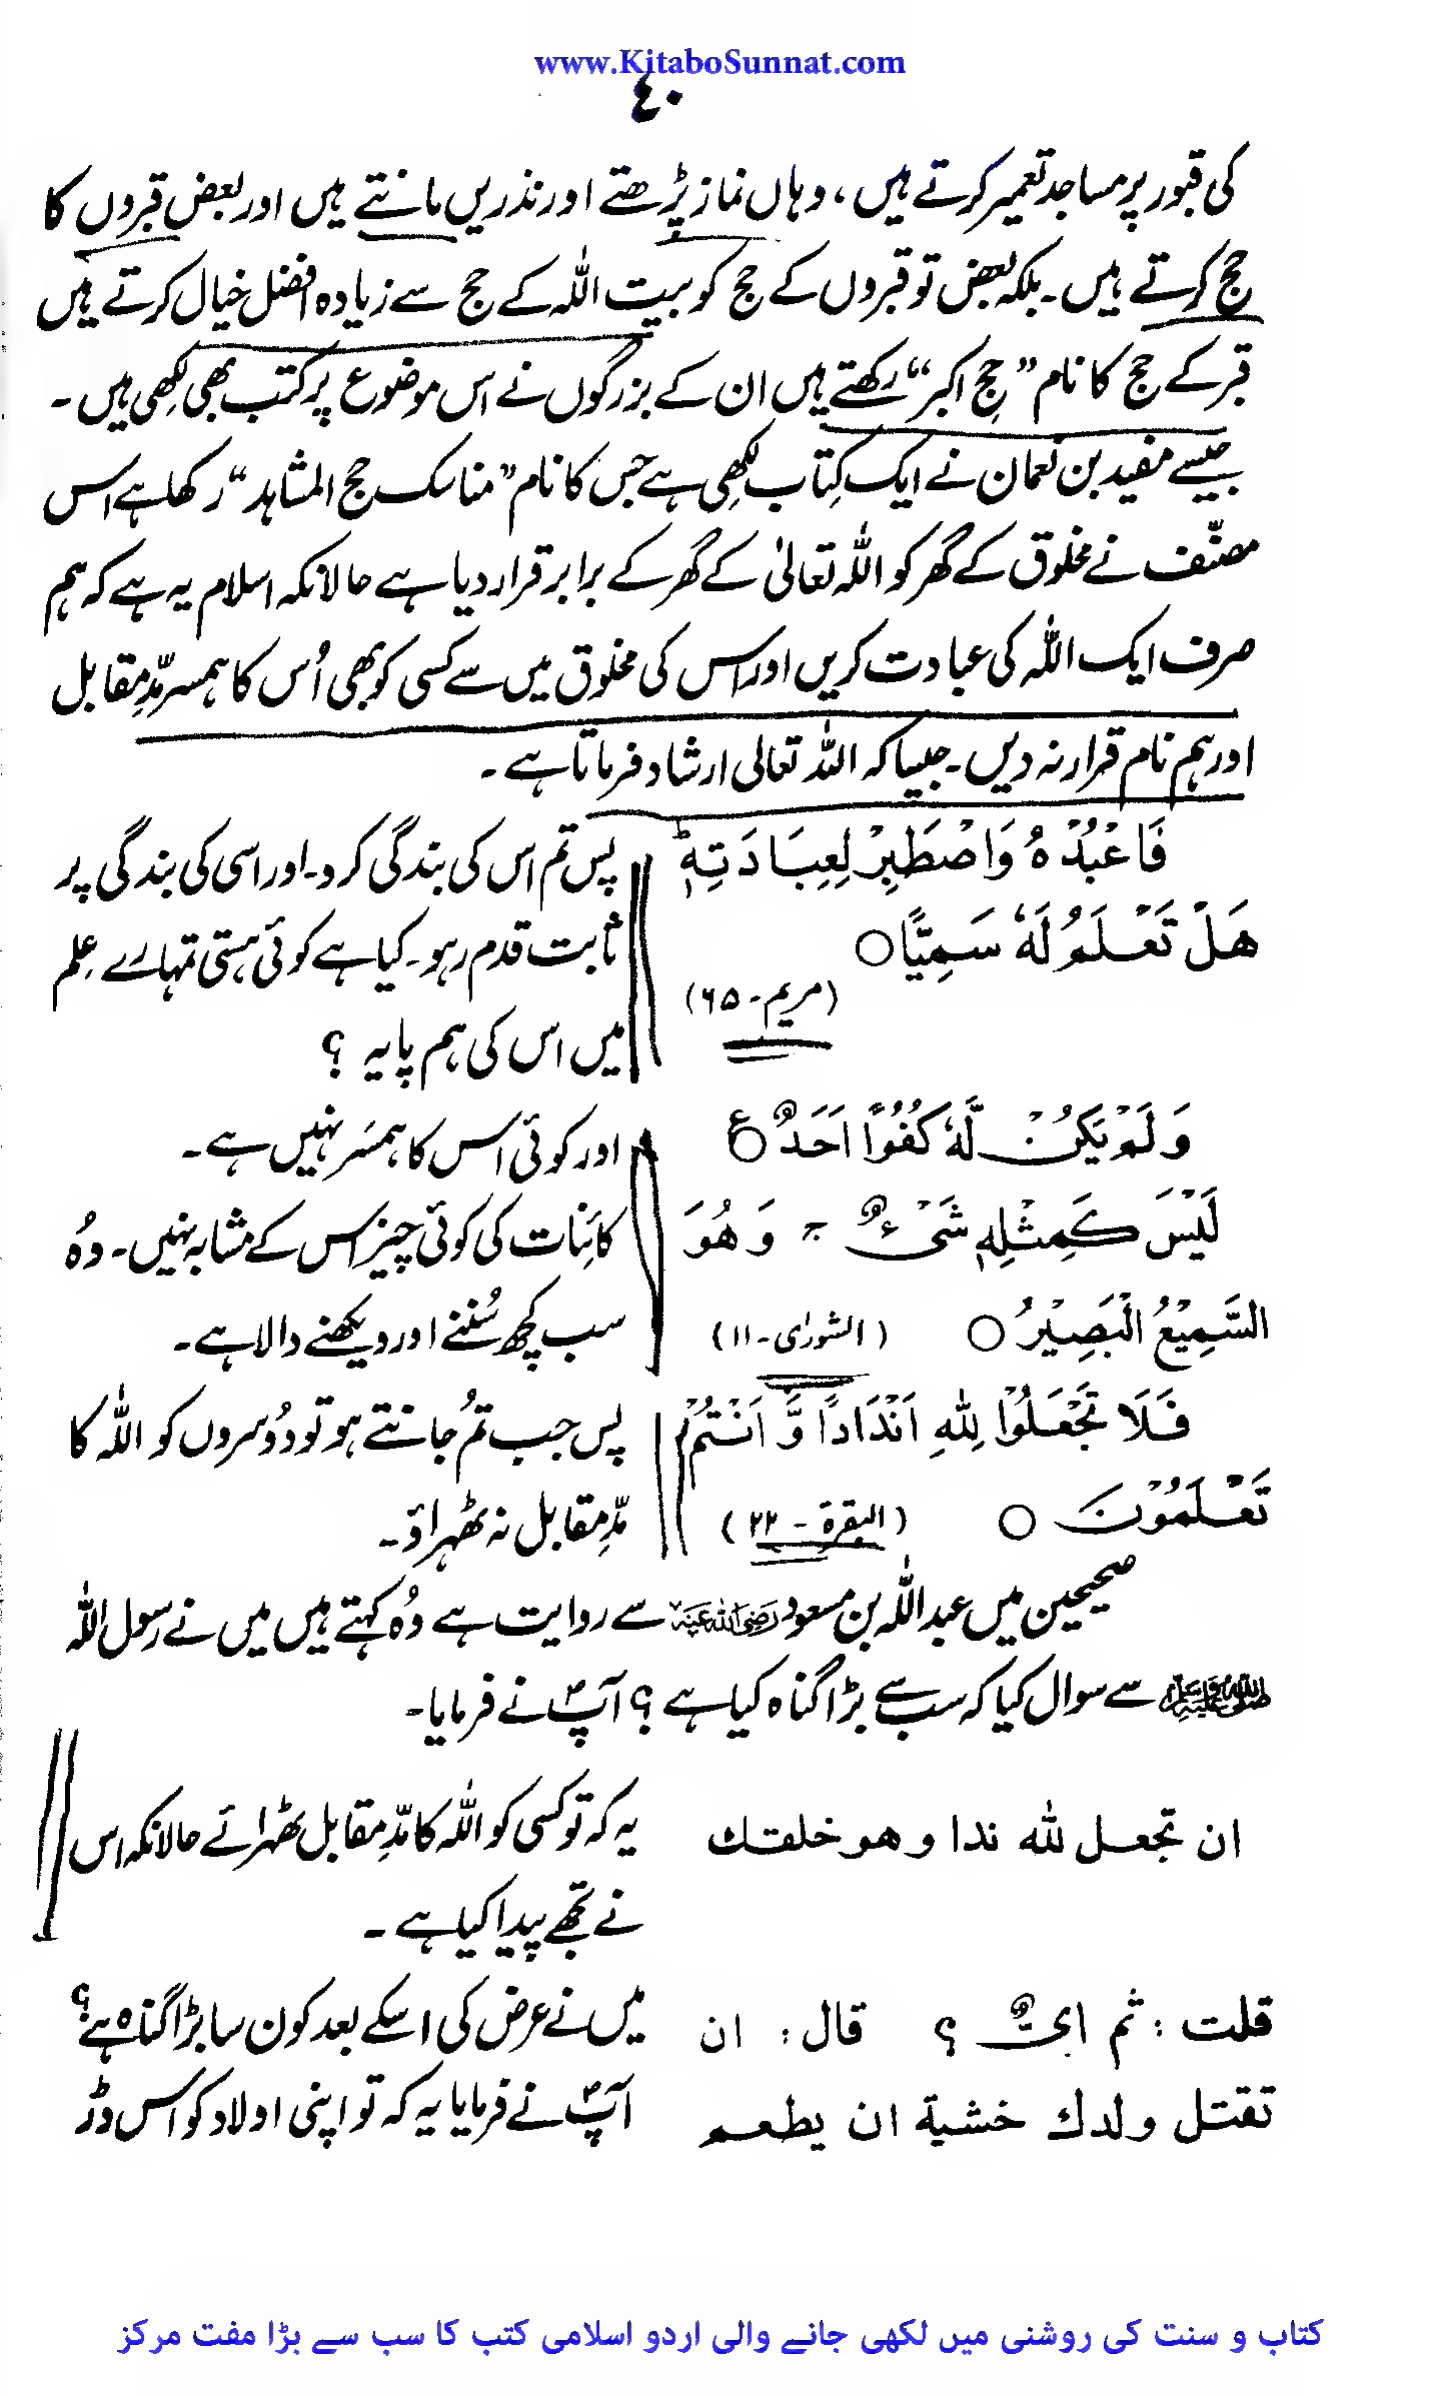 www.KitaboSunnat.com
٤٠
کی قبور پر مساجد تعمیر کرتے ہیں، وہاں نماز پڑھتے اور نذریں مانتے ہیں اور بعض قبروں کا
حج کرتے ہیں۔ بلکہ بعض تو قبروں کے حج کو بیت اللہ کے حج سے زیادہ افضل خیال کرتے ہیں
قبر کے حج کا نام ”حج اکبر“ رکھتے ہیں ان کے بزرگوں نے اس موضوع پر کتب بھی لکھی ہیں۔
جیسے مفید بن نعمان نے ایک کتاب لکھی ہے جس کا نام ”مناسک حج المشاہد“ رکھا ہے اس
مصنّف نے مخلوق کے گھر کو اللہ تعالیٰ کے گھر کے برابر قرار دیا ہے حالانکہ اسلام یہ ہے کہ ہم
صرف ایک اللہ کی عبادت کریں اور اس کی مخلوق میں سے کسی کو بھی اُس کا ہمسر مدِّمقابل
اور ہم نام قرار نہ دیں۔ جیسا کہ اللہ تعالی ارشاد فرماتا ہے۔
فَاعْبُدْهُ وَاصْطَبِرْ لِعِبَادَتِهٖ ؕ
هَلْ تَعْلَمُ لَهٗ سَمِيًّا ○
(مریم۔ ۶۵)
پس تم اس کی بندگی کرو۔ اور اسی کی بندگی پر
ثابت قدم رہو۔ کیا ہے کوئی ہستی تمہارے عِلم
میں اس کی ہم پایہ ؟
وَلَمْ يَكُنْ لَّهٗ كُفُوًا اَحَدٌ ○ ع
اور کوئی اس کا ہمسَر نہیں ہے۔
لَيْسَ كَمِثْلِهٖ شَيْءٌ ۚ وَهُوَ
السَّمِيْعُ الْبَصِيْرُ ○ (الشورٰی۔ ۱۱)
کائنات کی کوئی چیز اس کے مشابہ نہیں۔ وُہ
سب کچھ سُننے اور دیکھنے والا ہے۔
فَلَا تَجْعَلُوْا لِلّٰهِ اَنْدَادًا وَّ اَنْتُمْ
تَعْلَمُوْنَ ○ (البقرة ۔ ۲۲)
پس جب تمُ جانتے ہو تو دُوسروں کو اللہ کا
مدِّمقابل نہ ٹھہراؤ۔
صحیحین میں عبداللہ بن مسعود رضی اللہ عنہ سے روایت ہے وُہ کہتے ہیں میں نے رسول اللہ
صلی اللہ علیہ وسلم سے سوال کیا کہ سب سے بڑا گناہ کیا ہے ؟ آپؐ نے فرمایا۔
ان تجعل لله ندا وهو خلقك
یہ کہ تو کسی کو اللہ کا مدِّمقابل ٹھہرائے حالانکہ اس
نے تجھے پیدا کیا ہے ۔
قلت : ثم ایٌّ ؟ قال : ان
تقتل ولدك خشية ان يطعم
میں نے عرض کی اسکے بعد کون سا بڑا گناہ ہے؟
آپؐ نے فرمایا یہ کہ تو اپنی اولاد کو اس ڈر
کتاب و سنت کی روشنی میں لکھی جانے والی اردو اسلامی کتب کا سب سے بڑا مفت مرکز